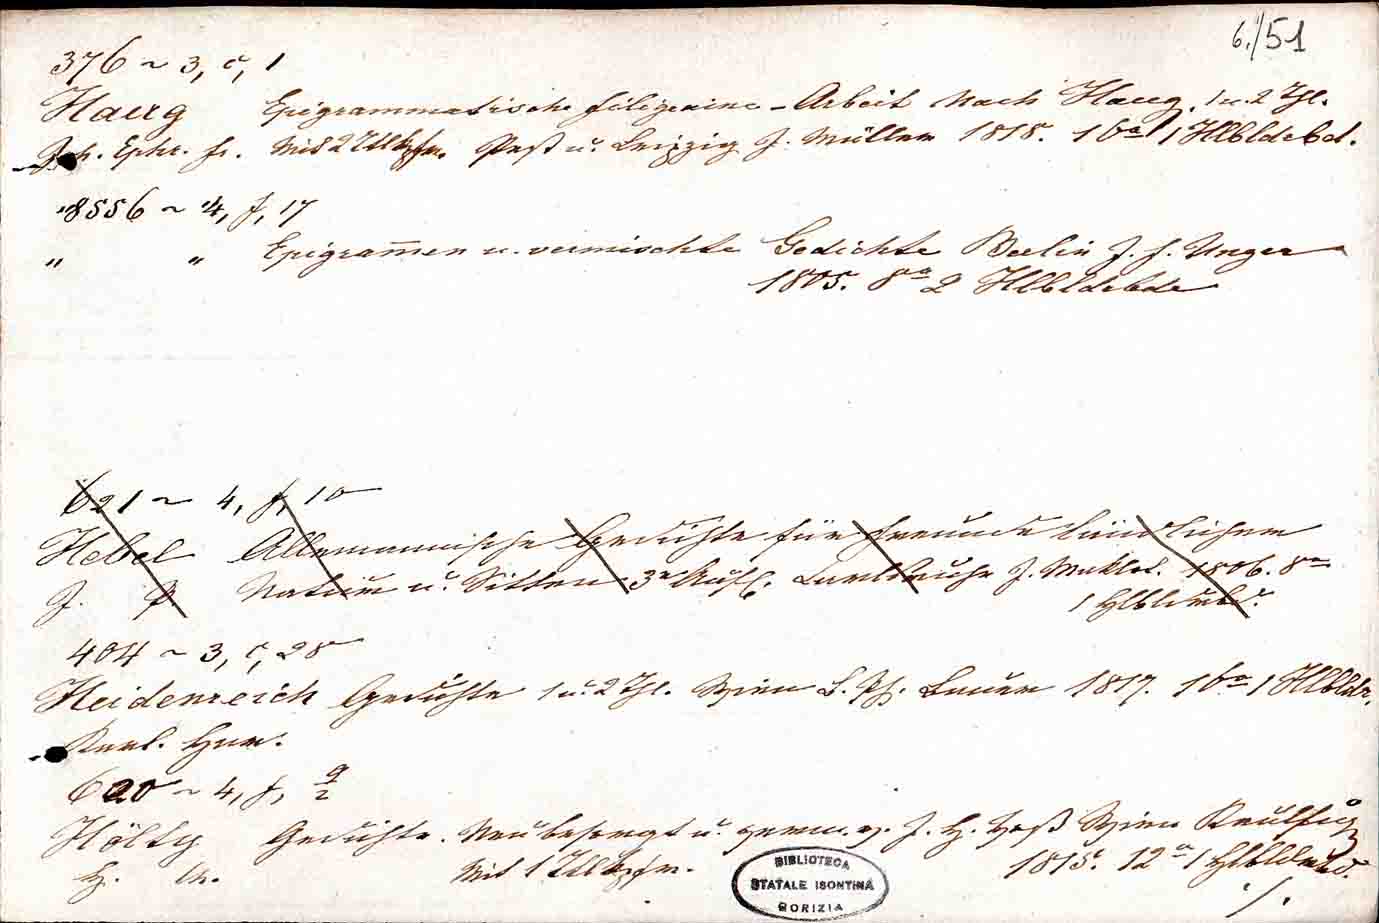 6./51
376 ~ 3, c, 1
Haug Epigrammatische Filigraine-Arbeit Nach Haug. 1 u. 2 Thl.
Joh. Chr. Fr. Mit 2 Ttlkpfr. Pest u. Leipzig J. Müller 1818. 16° 1 Hlbldrbd.
8556 ~ 4, f, 17
" " Epigramen u. vermischte Gedichte Berlin J. F. Unger
1805. 8° 2 Hlbldrbde
621 ~ 4, f, 10
Hebel Allemannische Gedichte für Freunde ländlicher
J. P. Natur u. Sitten 3e Aufl. Carlsruhe J. Maklot. 1806. 8°
1 Hlbldrbd.
404 ~ 3, c, 28
Heidenreich Gedichte 1 u. 2 Thl. Wien B. Ph. Bauer 1817. 16° 1 Hlbldr.
Karl. Hnr.
620 ~ 4, f, 9/2
Hölty Gedichte. Neu besorgt u. verm. v. J. H. Voß Wien Kaulfuß
H. Mit 1 Ttlkpfr. 1815. 12° 1 Hlbldrbd.
BIBLIOTECA
STATALE ISONTINA
GORIZIA
./.